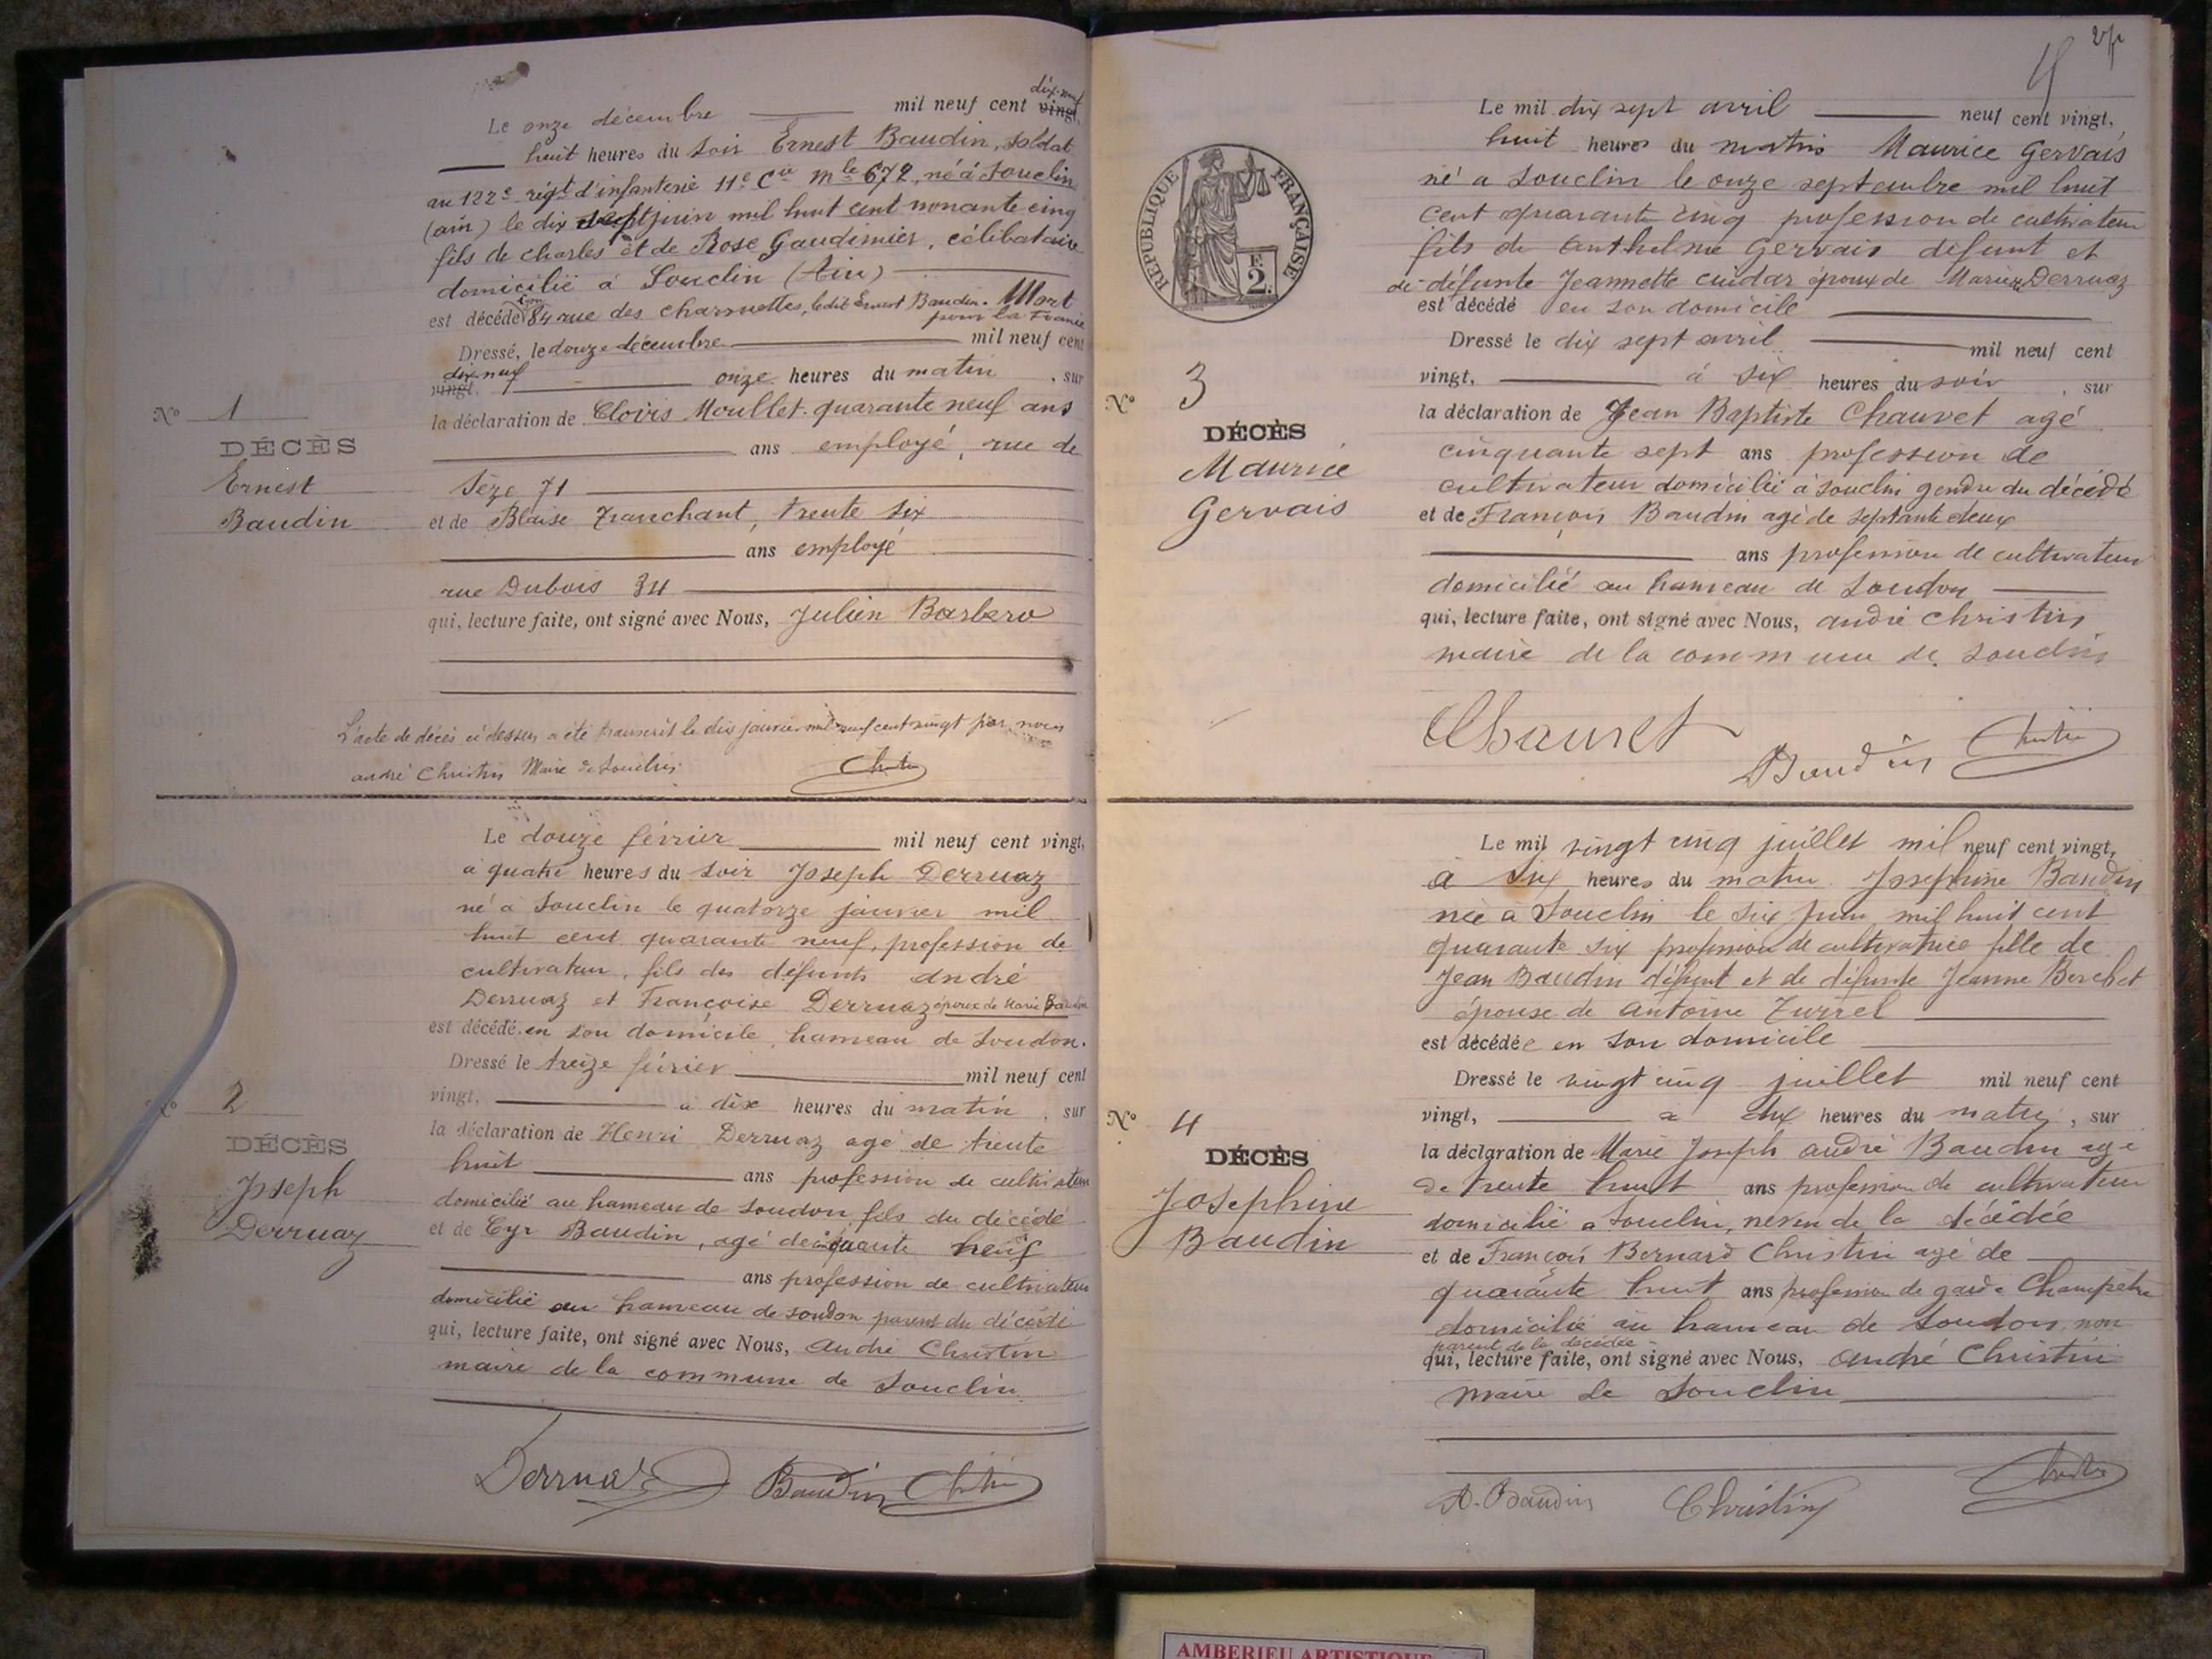 dix-neuf
Le onze décembre mil neuf cent vingt,
huit heures du soir Ernest Baudin, soldat
au 122e régt d'infanterie 11e Cie Mle 672, né à Souclin
(ain) le dix sept juin mil huit cent nonante cinq
fils de charles et de Rose Gaudimier, célibataire
domicilié à Souclin (Ain)
est décédé 84 rue des charmettes, ledit Ernest Baudin. Mort
pour la France
Dressé, le douze décembre mil neuf cent
dix neuf
vingt. onze heures du matin, sur
la déclaration de Clovis Moullet quarante neuf ans
ans employé, rue de
Sèze 71
et de Blaise Tranchant, trente six
ans employé
rue Dubois 34
qui, lecture faite, ont signé avec Nous, Julien Barbero
No 1
DÉCÈS
Ernest
Baudin
L'acte de décès ci dessus a été transcrit le dix janvier mil neuf cent vingt par nous
andré Christin Maire de Souclin
Christin
Le douze février mil neuf cent vingt,
à quatre heures du soir Joseph Derruaz
né à Souclin le quatorze janvier mil
huit cent quarante neuf, profession de
cultivateur, fils des défunts andré
Derruaz et Françoise Derruaz époux de Marie Baudin
est décédé en son domicile, hameau de Soudon.
Dressé le treize février mil neuf cent
vingt, à dix heures du matin, sur
la déclaration de Henri Derruaz agé de trente
huit ans profession de cultivateur
domicilié au hameau de Soudon fils du décédé
et de Cyr Baudin, agé de cinquante neuf
ans profession de cultivateur
domicilié au hameau de Soudon parent du décédé
qui, lecture faite, ont signé avec Nous, André Christin
maire de la commune de Souclin
No 2
DÉCÈS
Joseph
Derruaz
Derruaz Baudin Christin
Le mil dix sept avril neuf cent vingt,
huit heures du matin Maurice Gervais
né a Souclin le onze septembre mil huit
cent quarante cinq profession de cultivateur
fils de Anthelme Gervais défunt et
de défunte Jeannette cuidar époux de Marie Derruaz
est décédé en son domicile
Dressé le dix sept avril mil neuf cent
vingt, à six heures du soir, sur
la déclaration de Jean Baptiste Chauvet agé
cinquante sept ans profession de
cultivateur domicilié à Souclin gendre du décédé
et de François Baudin agé de septante deux
ans profession de cultivateur
domicilié au hameau de Soudon
qui, lecture faite, ont signé avec Nous, andré Christin
maire de la commune de Souclin
RÉPUBLIQUE FRANÇAISE
2
No 3
DÉCÈS
Maurice
Gervais
Chauvet Baudin Christin
Le mil vingt cinq juillet mil neuf cent vingt,
à six heures du matin Josephine Baudin
née à Souclin le six juin mil huit cent
quarante six profession de cultivatrice fille de
Jean Baudin défunt et de défunte Jeanne Berchet
épouse de Antoine Turrel
est décédée en son domicile
Dressé le vingt cinq juillet mil neuf cent
vingt, à dix heures du matin, sur
la déclaration de Marie Joseph andré Baudin agé
de trente huit ans profession de cultivateur
domicilié a Souclin, neveu de la décédée
et de François Bernard Christin agé de
quarante huit ans profession de garde Champêtre
domicilié au hameau de Soudon, non
parent de la décédée
qui, lecture faite, ont signé avec Nous, andré Christin
maire de Souclin
No 4
DÉCÈS
Josephine
Baudin
A. Baudin Christin Christin
AMBERIEU ARTISTIQUE